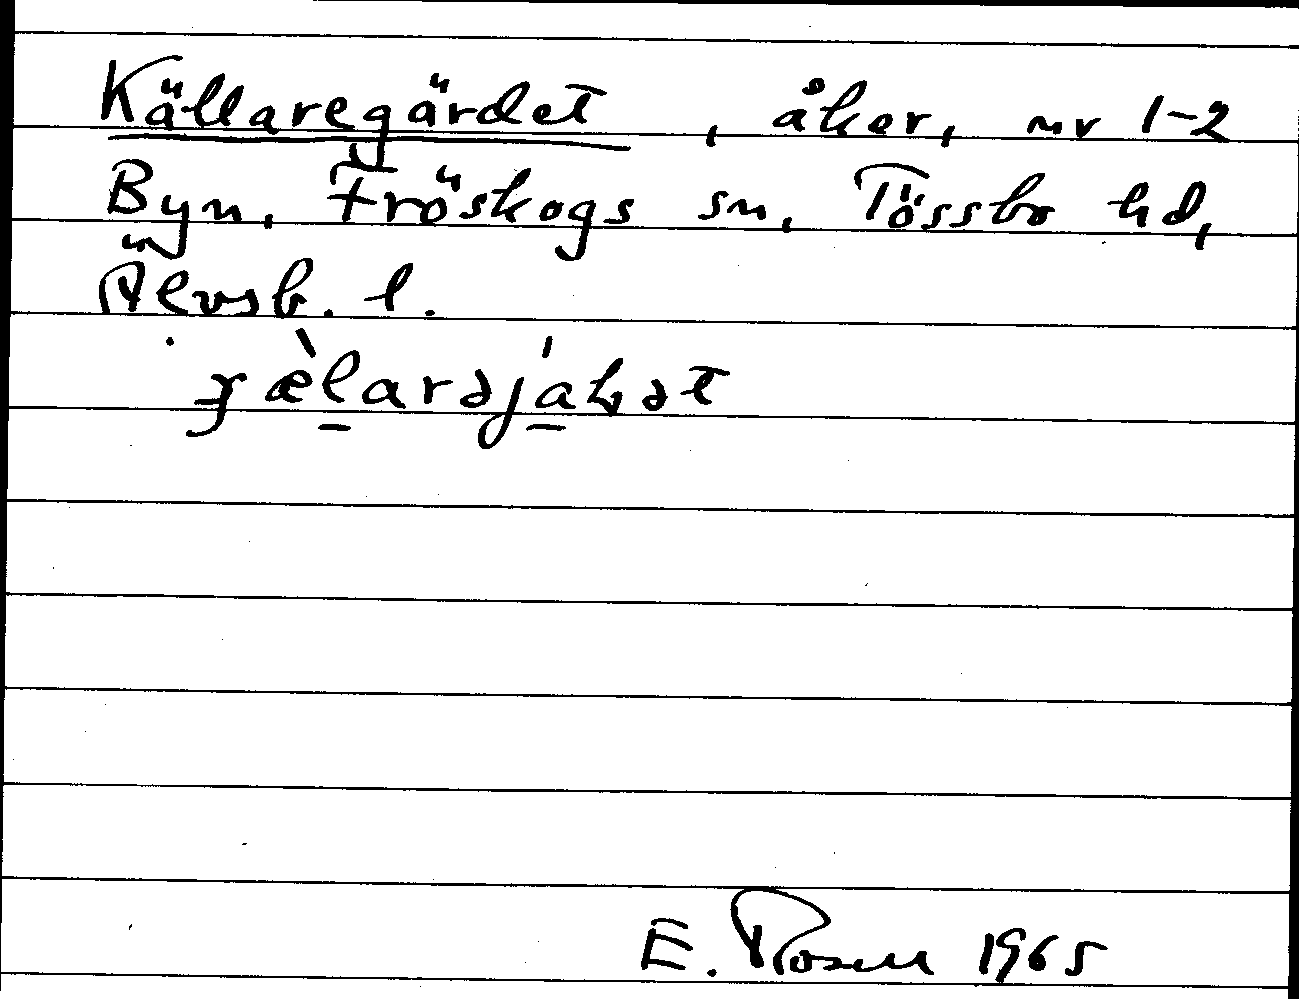 Källaregärdet, åker, nr 1-2
Byn, Fröskogs sn, Tössbo hd,
Älvsb. l.
E. Rosell 1965